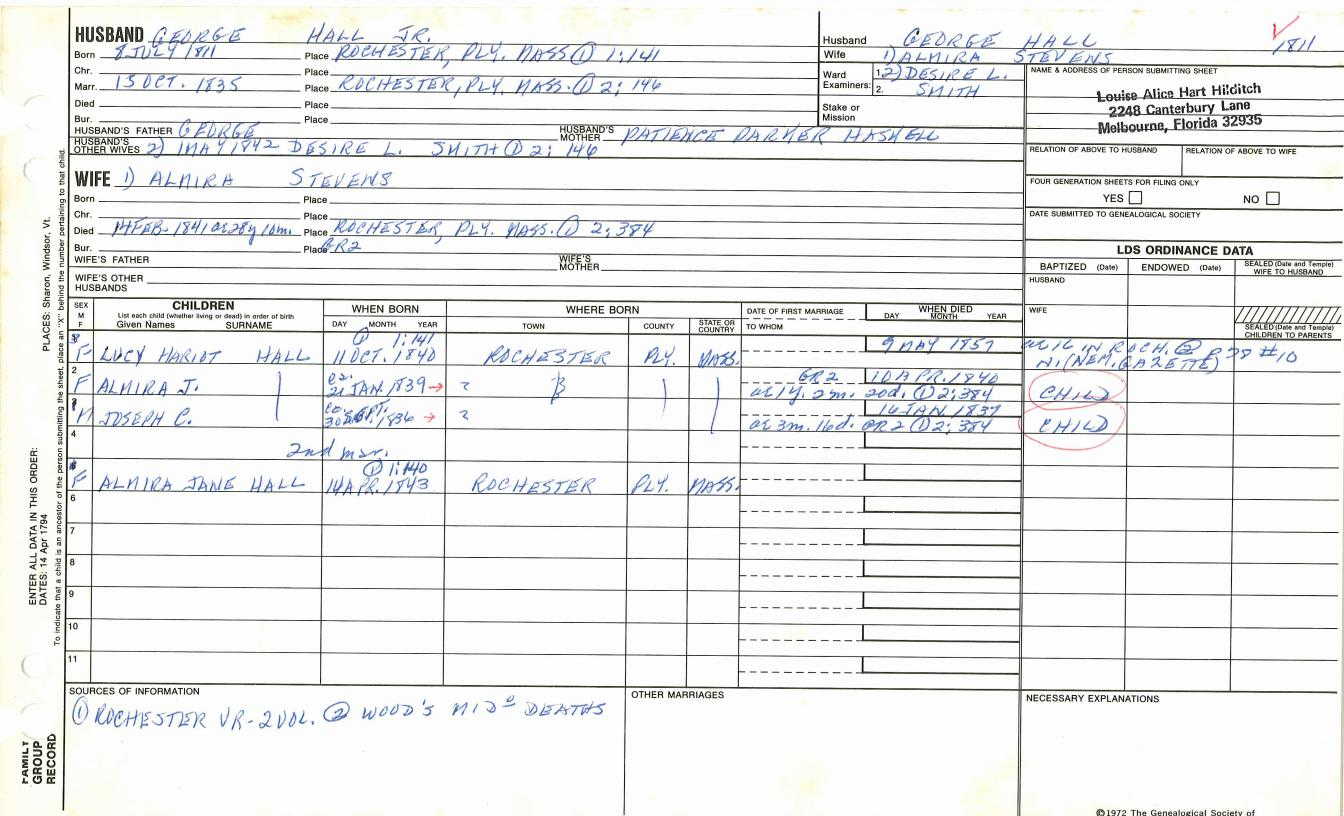 HUSBAND GEORGE HALL JR.
Born 8 JULY 1811 Place ROCHESTER, PLY. MASS ① 1:141
Chr. Place
Marr. 15 OCT. 1835 Place ROCHESTER, PLY. MASS. ① 2: 146
Died Place
Bur. Place
HUSBAND'S FATHER GEORGE HUSBAND'S MOTHER PATIENCE PARKER HASKELL
HUSBAND'S OTHER WIVES 2) 1 MAY 1842 DESIRE L. SMITH ① 2: 146
WIFE 1) ALMIRA STEVENS
Born Place
Chr. Place
Died 14 FEB. 1841 ae 28y 10m. Place ROCHESTER, PLY. MASS. ① 2:384
Bur. Place GR2
WIFE'S FATHER WIFE'S MOTHER
WIFE'S OTHER HUSBANDS
Husband GEORGE HALL
1811
Wife 1) ALMIRA STEVENS
Ward Examiners: 1. 2) DESIRE L.
2. SMITH
Stake or Mission
NAME & ADDRESS OF PERSON SUBMITTING SHEET
Louise Alice Hart Hilditch
2248 Canterbury Lane
Melbourne, Florida 32935
RELATION OF ABOVE TO HUSBAND RELATION OF ABOVE TO WIFE
FOUR GENERATION SHEETS FOR FILING ONLY
YES NO
DATE SUBMITTED TO GENEALOGICAL SOCIETY
LDS ORDINANCE DATA
BAPTIZED (Date) ENDOWED (Date) SEALED (Date and Temple) WIFE TO HUSBAND
HUSBAND
WIFE
SEALED (Date and Temple) CHILDREN TO PARENTS
SEX M F
CHILDREN
List each child (whether living or dead) in order of birth
Given Names SURNAME
WHEN BORN
DAY MONTH YEAR
WHERE BORN
TOWN COUNTY STATE OR COUNTRY
DATE OF FIRST MARRIAGE
TO WHOM
WHEN DIED
DAY MONTH YEAR
① 1:141
F LUCY HARIOT HALL 11 OCT. 1840 ROCHESTER PLY. MASS. 9 MAY 1857 ae 16 IN ROCH. ② P 78 #10
N.(NEM. GAZETTE)
2 F ALMIRA J. ca. 21 JAN. 1839 → ? GR2 10 APR. 1840
ae 1y. 2m. 20d. ① 2:384 CHILD
M JOSEPH C. ca. 30 SEPT. 1836 → ? 16 JAN. 1837
ae 3m. 16d. GR2 ① 2; 384 CHILD
4
2nd mar.
① 1:140
F ALMIRA JANE HALL 14 APR. 1843 ROCHESTER PLY. MASS.
6
7
8
9
10
11
SOURCES OF INFORMATION
① ROCHESTER VR-2VOL. ② WOOD'S MIDᵒ DEATHS
OTHER MARRIAGES
NECESSARY EXPLANATIONS
©1972 The Genealogical Society of
PLACES: Sharon, Windsor, Vt.
ENTER ALL DATA IN THIS ORDER:
DATES: 14 Apr 1794
To indicate that a child is an ancestor of the person submitting the sheet, place an "X" behind the number pertaining to that child.
FAMILY GROUP RECORD